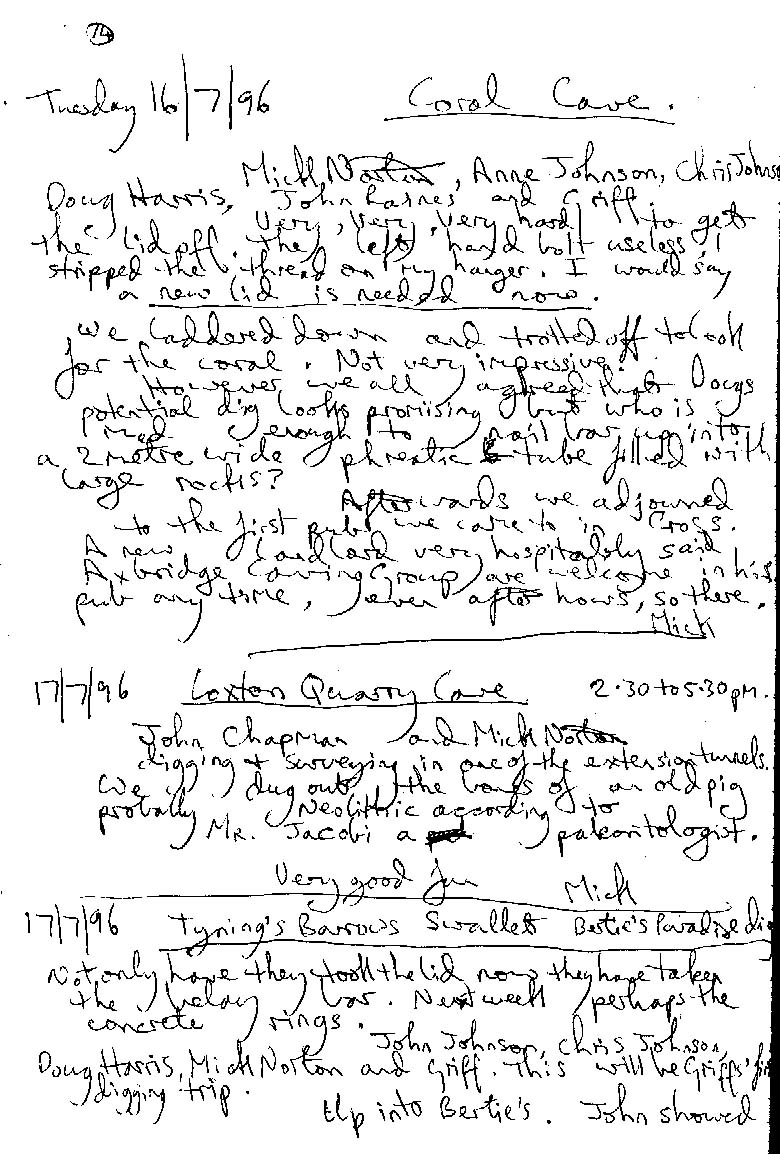 74
Tuesday 16/7/96 Coral Cave.
Mick Norton, Anne Johnson, Chris Johnso
Doug Harris, John Haines and Griff.
Very, very, very hard to get
the lid off. The left hand bolt useless, I
stripped the thread on my hanger. I would say
a new lid is needed now.
We laddered down and trotted off to look
for the coral. Not very impressive.
However we all agreed that Dougs
potential dig looks promising but who is
mad enough to up into
a 2 metre wide phreatic tube filled with
large rocks?
Afterwards we adjourned
to the first pub we came to in Cross.
A new Landlord very hospitably said
Axbridge Caving Group are welcome in his
pub any time, even after hours, so there.
Mick
17/7/96 Loxton Quarry Cave 2.30 to 5.30 pm.
John Chapman and Mick Norton
digging + surveying in one of the extension tunnels.
We dug out the bones of an old pig
probably Neolithic according to
Mr. Jacobi a paleontologist.
Very good fun Mick
17/7/96 Tyning's Barrows Swallet Bertie's Paradise dig
Not only have they took the lid now they have taken
the belay bar. Next week perhaps the
concrete rings.
John Johnson, Chris Johnson,
Doug Harris, Mick Norton and Griff. This will be Griffs' fir
digging trip.
Up into Bertie's. John showed